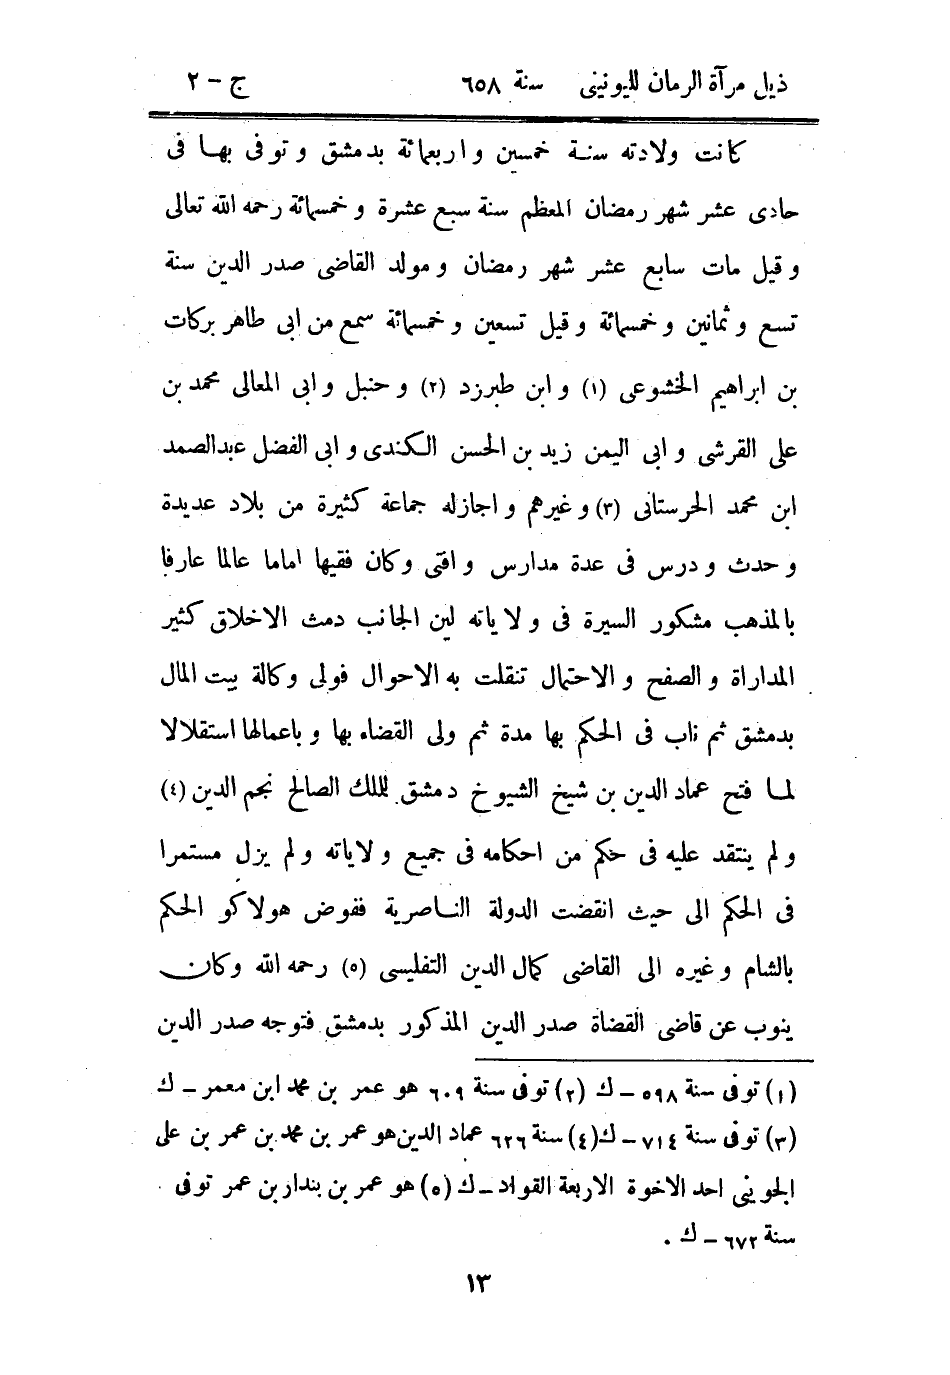 ذيل مرآة الزمان لليونينى سنة ٦٥٨ ج – ٢
كانت ولادته سنة خمسين و اربعمائة بدمشق و توفى بها فى
حادى عشر شهر رمضان المعظم سنة سبع عشرة و خمسمائة رحمه الله تعالى
و قيل مات سابع عشر شهر رمضان و مولد القاضى صدر الدين سنة
تسع و ثمانين و خمسمائة و قيل تسعين و خمسمائة سمع من ابى طاهر بركات
بن ابراهيم الخشوعى (١) و ابن طبرزد (٢) و حنبل و ابى المعالى محمد بن
على القرشى و ابى اليمن زيد بن الحسن الكندى و ابى الفضل عبدالصمد
ابن محمد الحرستانى (٣) و غيرهم و اجازله جماعة كثيرة من بلاد عديدة
و حدث و درس فى عدة مدارس و افتى وكان فقيها اماما عالما عارفا
بالمذهب مشكور السيرة فى و لاياته لين الجانب دمث الاخلاق كثير
المداراة و الصفح و الاحتمال تنقلت به الاحوال فولى وكالة بيت المال
بدمشق ثم ناب فى الحكم بها مدة ثم ولى القضاء بها و باعمالها استقلالا
لما فتح عماد الدين بن شيخ الشيوخ دمشق للملك الصالح نجم الدين (٤)
و لم ينتقد عليه فى حكم من احكامه فى جميع و لاياته و لم يزل مستمرا
فى الحكم الى حيث انقضت الدولة الناصرية ففوض هولاكو الحكم
بالشام و غيره الى القاضى كمال الدين التفليسى (٥) رحمه الله وكان
ينوب عن قاضى القضاة صدر الدين المذكور بدمشق فتوجه صدر الدين
(١) توفى سنة ٥٩٨ – ك (٢) توفى سنة ٦٠٩ هو عمر بن محمد ابن معمر – ك
(٣) توفى سنة ٧١٤ – ك (٤) سنة ٦٢٦ عماد الدين هو عمر بن محمد بن عمر بن على
الجوينى احد الاخوة الاربعة القواد – ك (٥) هو عمر بن بندار بن عمر توفى
سنة ٦٧٢ – ك .
١٣